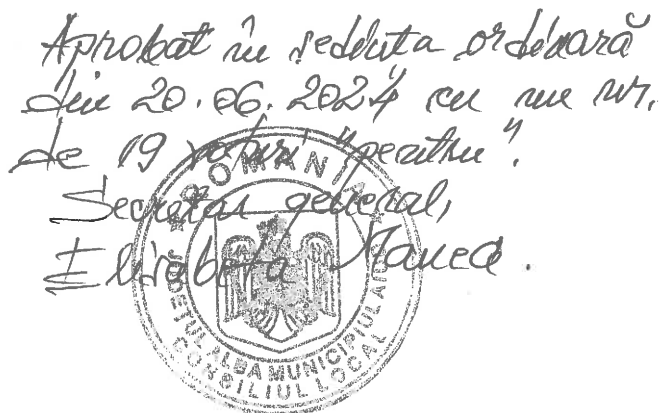 Aprobat în ședința ordinară
din 20.06.2024 cu un nr.
de 19 voturi "pentru".
Secretar general,
Elisabeta
ROMÂNIA
JUDEȚUL ALBA MUNICIPIUL AIUD
CONSILIUL LOCAL